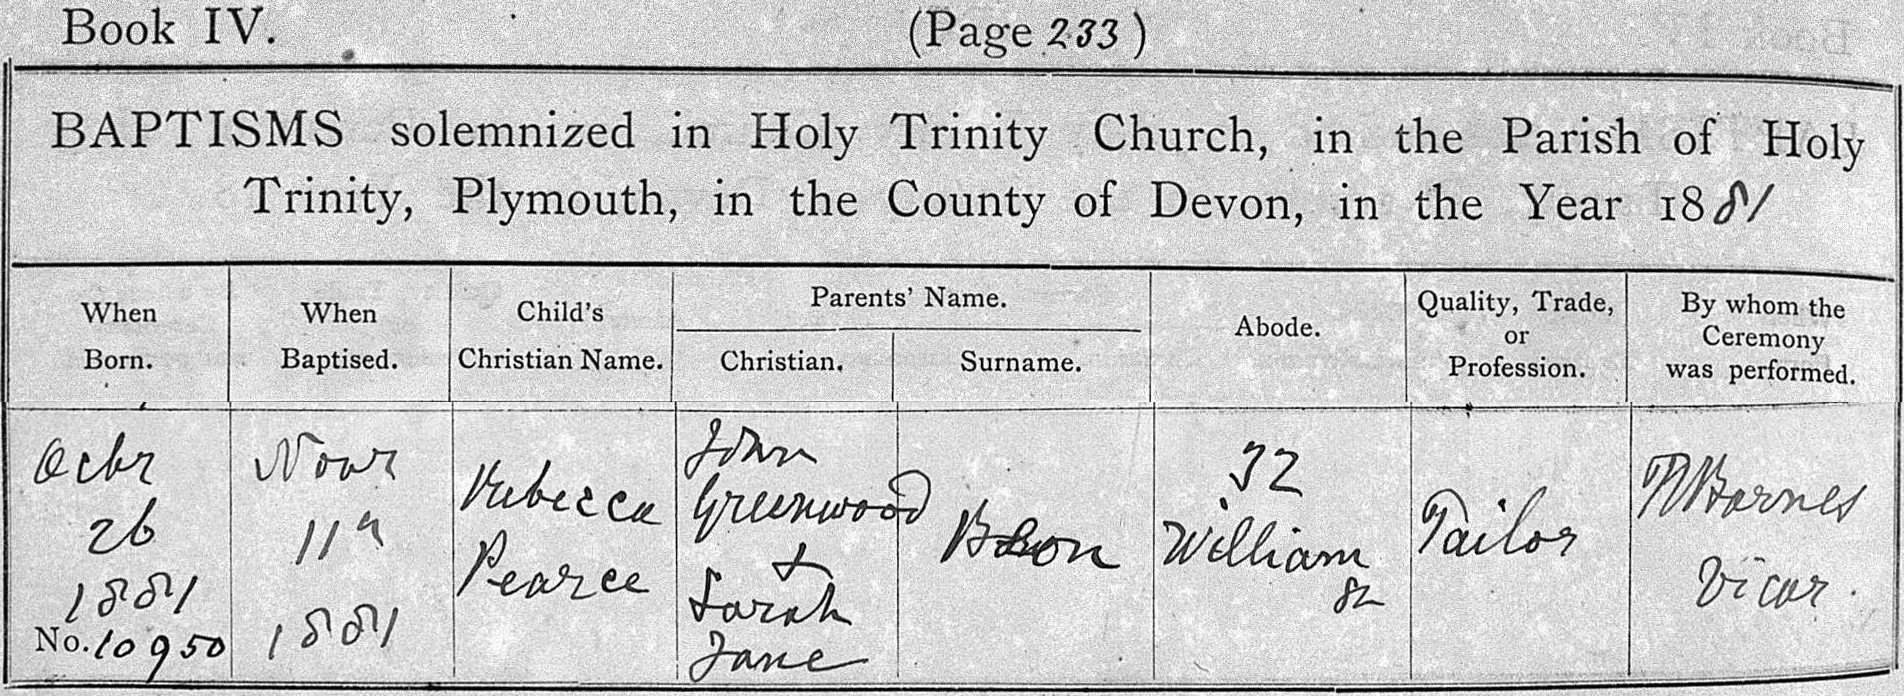 Book IV.
(Page 233)
BAPTISMS solemnized in Holy Trinity Church, in the Parish of Holy
Trinity, Plymouth, in the County of Devon, in the Year 1881
When
Born.
When
Baptised.
Child's
Christian Name.
Parents' Name.
Christian.
Surname.
Abode.
Quality, Trade,
or
Profession.
By whom the
Ceremony
was performed.
Octr
26
1881
No. 10950
Novr
11th
1881
Rebecca
Pearce
John
Greenwood
+
Sarah
Jane
32
William
St
Tailor
Barnes
Vicar.